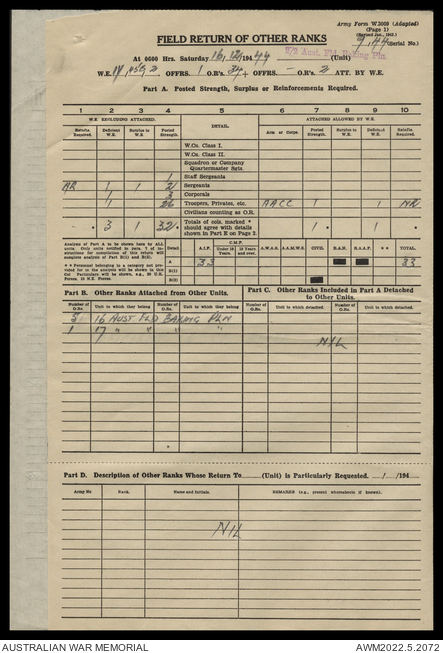 Army Form W.3009 (Adapted)
(Page 1)
(Revised Jan., 1943.)
FIELD RETURN OF OTHER RANKS
9/44 (Serial No.)
At 0600 Hrs. Saturday 16/12/1944 2/2 Aust. Fld. Baking Pln. (Unit)
W.E. OFFRS. 1 O.R's. 34 + OFFRS. - O.R's 2 ATT. BY W.E.
Part A. Posted Strength, Surplus or Reinforcements Required.
1 2 3 4 5 6 7 8 9 10
W.E. EXCLUDING ATTACHED. ATTACHED ALLOWED BY W.E.
Reinfts Required. Deficient W.E. Surplus to W.E. Posted Strength. DETAIL. Arm or Corps. Posted Strength. Surplus to W.E. Deficient W.E. Reinfts Required.
W.Os. Class I.
W.Os. Class II.
Squadron or Company Quartermaster Sgts.
1 Staff Sergeants
1 1 2 Sergeants
1 3 Corporals
1 26 Troopers, Privates, etc. AACC 1 1 NR
Civilians counting as O.R.
- * 3 1 32 * Totals of cols. marked * should agree with details shown in Part E on Page 2. 1 * 1 *
Analysis of Part A to be shown here for ALL
C.M.F.
Detail A.I.F. Under 19 Years. 19 Years and over. A.W.A.S. A.A.M.W.S. CIVIL R.A.N. R.A.A.F. * * TOTAL.
A 33 33
B(1)
B(2)
Part B. Other Ranks Attached from Other Units.
Part C. Other Ranks Included in Part A Detached to Other Units.
Number of O.Rs. Unit to which they belong Number of O.Rs. Unit to which they belong Number of O.Rs. Unit to which detached. Number of O.Rs. Unit to which detached.
5 16 AUST FLD BAKING PLN
1 17 " " " "
NIL
Part D. Description of Other Ranks Whose Return To (Unit) is Particularly Requested. / /194
Army No Rank. Name and Initials. REMARKS (e.g., present whereabouts if known).
NIL
AUSTRALIAN WAR MEMORIAL
AWM2022.5.2072